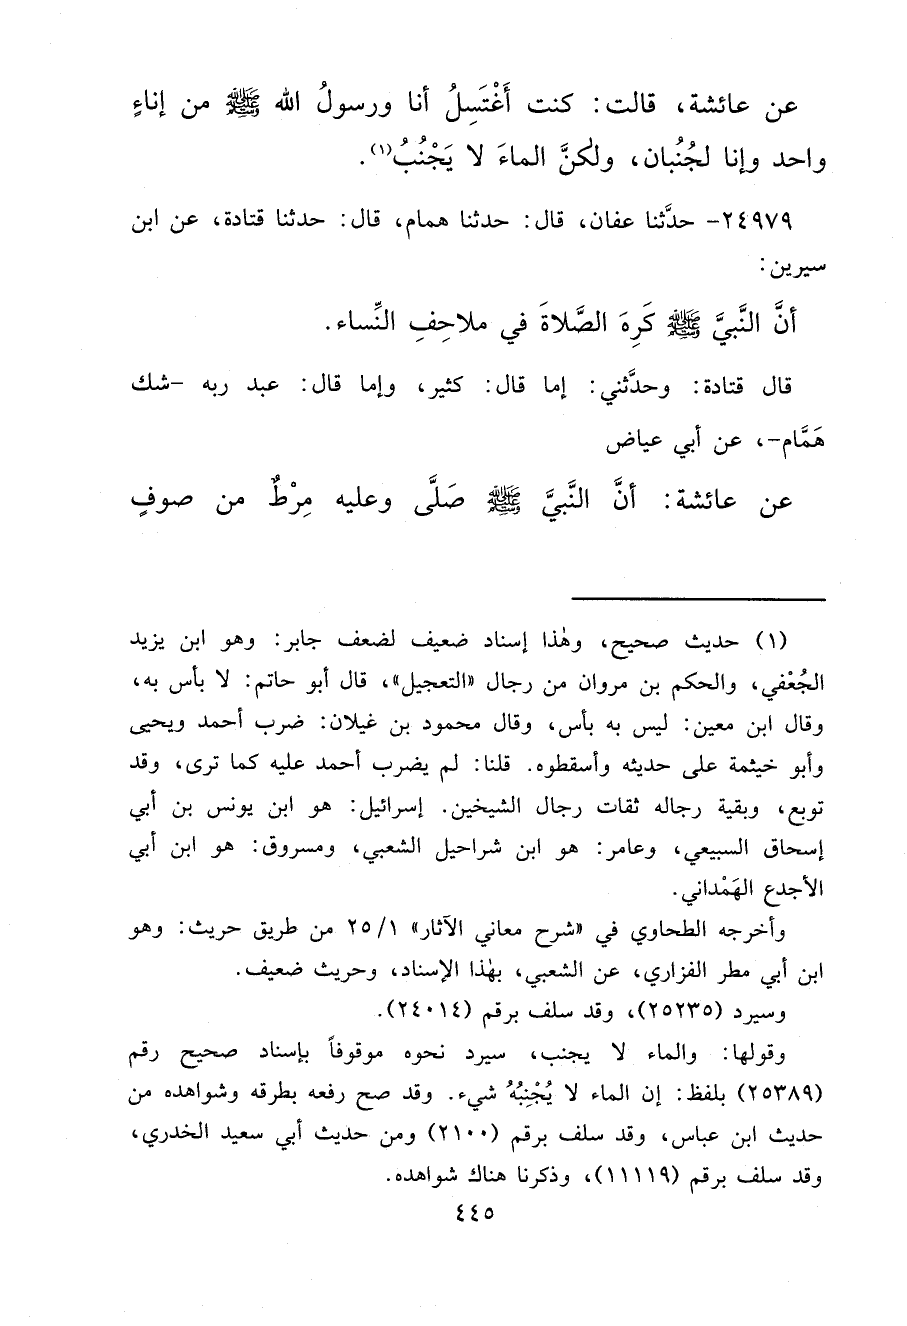 عن عائشة، قالت: كنت أَغْتَسِلُ أنا ورسولُ الله ﷺ من إناءٍ
واحد وإنا لجُنُبان، ولكنَّ الماءَ لا يَجْنُبُ(١).
٢٤٩٧٩- حدَّثنا عفان، قال: حدثنا همام، قال: حدثنا قتادة، عن ابن
سيرين:
أنَّ النَّبيَّ ﷺ كَرِهَ الصَّلاةَ في ملاحِفِ النِّساء.
قال قتادة: وحدَّثني: إما قال: كثير، وإما قال: عبد ربه -شك
هَمَّام-، عن أبي عياض
عن عائشة: أنَّ النَّبيَّ ﷺ صَلَّى وعليه مِرْطٌ من صوفٍ
(١) حديث صحيح، وهٰذا إسناد ضعيف لضعف جابر: وهو ابن يزيد
الجُعْفي، والحكم بن مروان من رجال «التعجيل»، قال أبو حاتم: لا بأس به،
وقال ابن معين: ليس به بأس، وقال محمود بن غيلان: ضرب أحمد ويحيى
وأبو خيثمة على حديثه وأسقطوه. قلنا: لم يضرب أحمد عليه كما ترى، وقد
توبع، وبقية رجاله ثقات رجال الشيخين. إسرائيل: هو ابن يونس بن أبي
إسحاق السبيعي، وعامر: هو ابن شراحيل الشعبي، ومسروق: هو ابن أبي
الأجدع الهَمْداني.
وأخرجه الطحاوي في «شرح معاني الآثار» ٢٥/١ من طريق حريث: وهو
ابن أبي مطر الفزاري، عن الشعبي، بهٰذا الإسناد، وحريث ضعيف.
وسيرد (٢٥٢٣٥)، وقد سلف برقم (٢٤٠١٤).
وقولها: والماء لا يجنب، سيرد نحوه موقوفاً بإسناد صحيح رقم
(٢٥٣٨٩) بلفظ: إن الماء لا يُجْنِبُهُ شيء. وقد صح رفعه بطرقه وشواهده من
حديث ابن عباس، وقد سلف برقم (٢١٠٠) ومن حديث أبي سعيد الخدري،
وقد سلف برقم (١١١١٩)، وذكرنا هناك شواهده.
٤٤٥